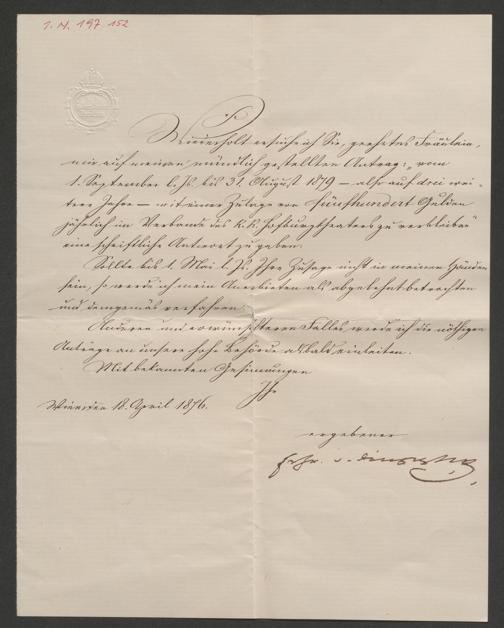 I. N. 197 152
Wiederholt ersuche ich Sie, geehrtes Fräulein,
mir auf meinen mündlich gestellten Antrag: „vom
1. September l. Js. bis 31. August 1879 – also auf drei wei-
tere Jahre – mit einer Zulage von fünfhundert Gulden
jährlich im Verbande des k. k. Hofburgtheaters zu verbleiben“
eine schriftliche Antwort zu geben.
Sollte bis 1. Mai l. Js. Ihre Zusage nicht in meinen Händen
sein, so werde ich mein Anerbieten als abgelehnt betrachten
und demgemäß verfahren.
Anderen und erwünschteren Falles werde ich die nöthigen
Anträge an unsere hohe Behörde alsbald einleiten.
Mit bekannten Gesinnungen
Ihr
Wien den 18. April 1876.
ergebener